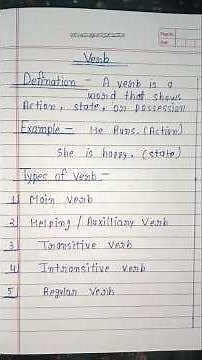 Verb
Defination - A verb is a
word that shows
Action, state, or possession
Example - He Runs. (Action)
She is happy. (state)
Types of verb -
1 Main verb
2 Helping / Auxilliary Verb
3 Transitive verb
4 Intransitive verb
5 Regular Verb